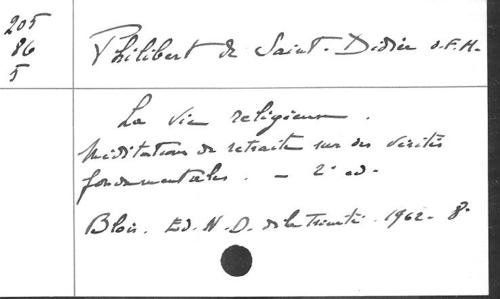 205
86
5
Philibert de Saint-Didier o.F.M.
La vie religieuse.
Méditations de retraite sur des vérités
fondamentales. - 2e ed.
Blois. Ed. N.D. de la Trinité. 1962. 8°